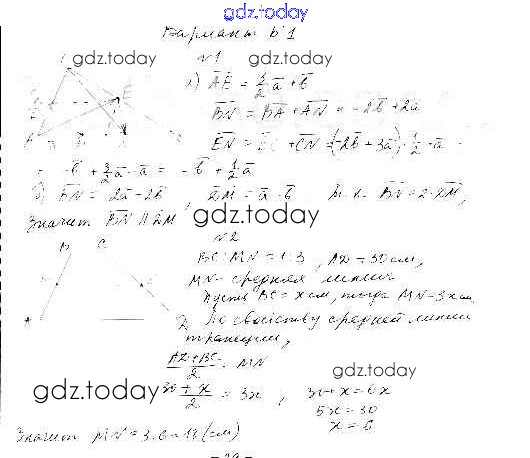 gdz.today
Вариант Б 1
gdz.today gdz.today
№1
а) AE = 3/2 a + b
BN = BA + AN = -2b + 2a
EN = EC + CN = (-2b + 3a) · 1/2 - a =
= -b + 3/2 a - a = -b + 1/2 a
б) BN = 2a - 2b a - b BN = 2·
Значит BN ||
gdz.today
№2
B C
BC : MN = 1:3, AD = 30 см,
MN - средняя линия
Пусть BC = x см, тогда MN = 3x см
A D По свойству средней линии
трапеции,
(AD + BC)/2 = MN
gdz.today
(30 + x)/2 = 3x ; 30 + x = 6x
gdz.today
5x = 30
x = 6
Значит MN = 3·6 = 18 (см)